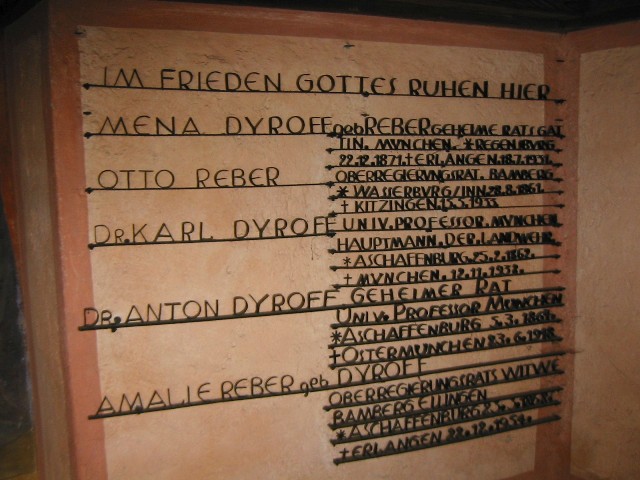 IM FRIEDEN GOTTES RUHEN HIER
MENA DYROFF geb REBER GEHEIME RATSGAT
TIN. MVNCHEN. *REGENSBVRG
22.12.1871.†ERLANGEN.18.7.1951.
OTTO REBER OBERREGIERVNGSRAT. BAMBERG
* WASSERBVRG/INN.28.8.1861.
† KITZINGEN.15.5.1933
Dr. KARL DYROFF UNIV. PROFESSOR. MVNCHEN
HAUPTMANN. DER. LANDWEHR.
*ASCHAFFENBURG.25.2.1862.
† MVNCHEN. 12.11.1938.
Dr. ANTON DYROFF GEHEIMER RAT
UNIV. PROFESSOR MUNCHEN
*ASCHAFFENBURG 5.3.1864.
†OSTERMUNCHEN 23.6.1948.
AMALIE REBER geb DYROFF
OBERREGIERUNGSRATS WITWE
BAMBERG ELLINGEN
*ASCHAFFENBURG
†ERLANGEN 22.12.1954.